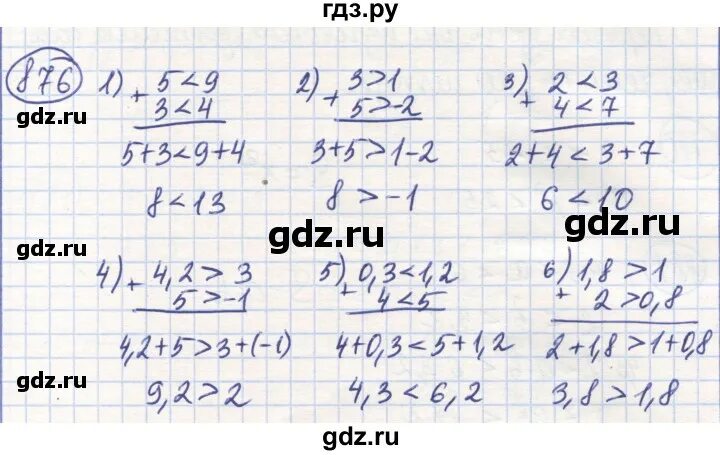 гдз.ру
876
1) 5 < 9
+ 3 < 4
5+3 < 9+4
8 < 13
2) 3 > 1
+ 5 > -2
3+5 > 1-2
8 > -1
3) 2 < 3
+ 4 < 7
2+4 < 3+7
6 < 10
gdz.ru
gdz.ru
gdz.ru
gdz.ru
4) 4,2 > 3
+ 5 > -1
4,2+5 > 3+(-1)
9,2 > 2
5) 0,3 < 1,2
+ 4 < 5
4+0,3 < 5+1,2
4,3 < 6,2
6) 1,8 > 1
+ 2 > 0,8
2+1,8 > 1+0,8
3,8 > 1,8
gdz.ru
gdz.ru
gdz.ru
gdz.ru